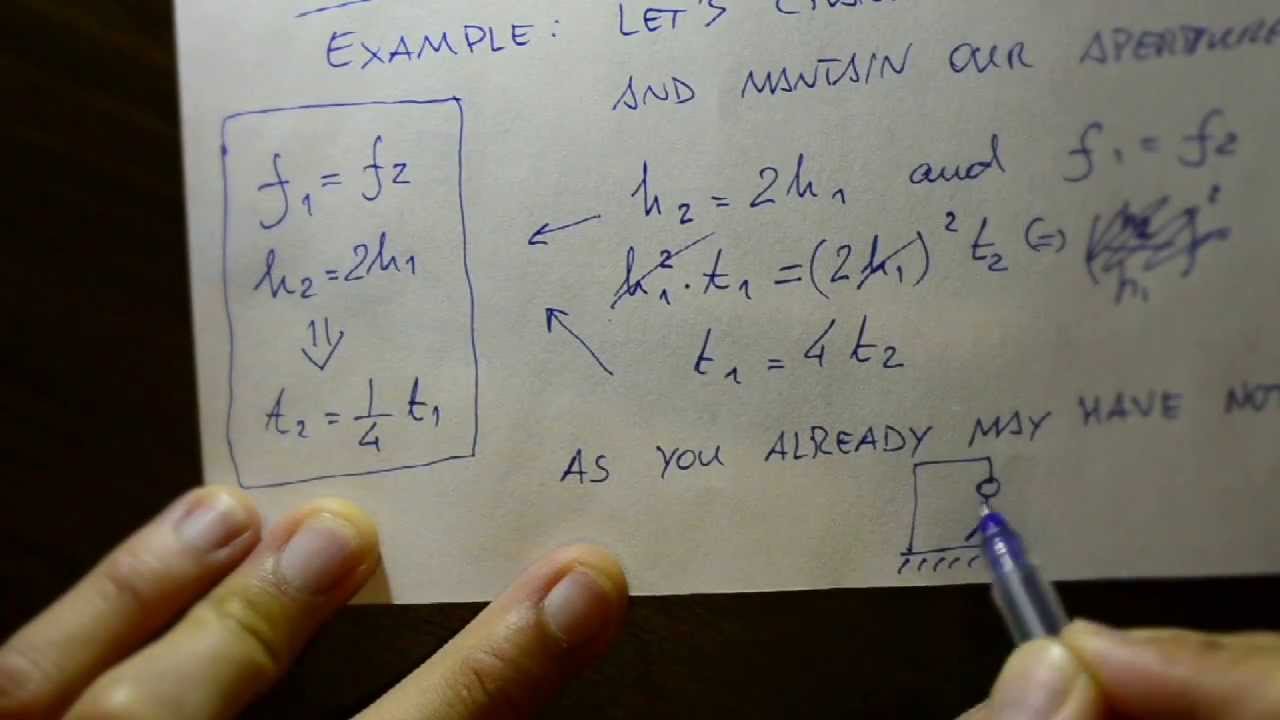 EXAMPLE: LET'S
AND MANTAIN OUR APERTURE
f₁ = f₂
h₂ = 2h₁
⇓
t₂ = 1/4 t₁
← h₂ = 2h₁ and f₁ = f₂
h₁² · t₁ = (2h₁)² t₂ (=)
t₁ = 4 t₂
AS YOU ALREADY MAY HAVE NOT